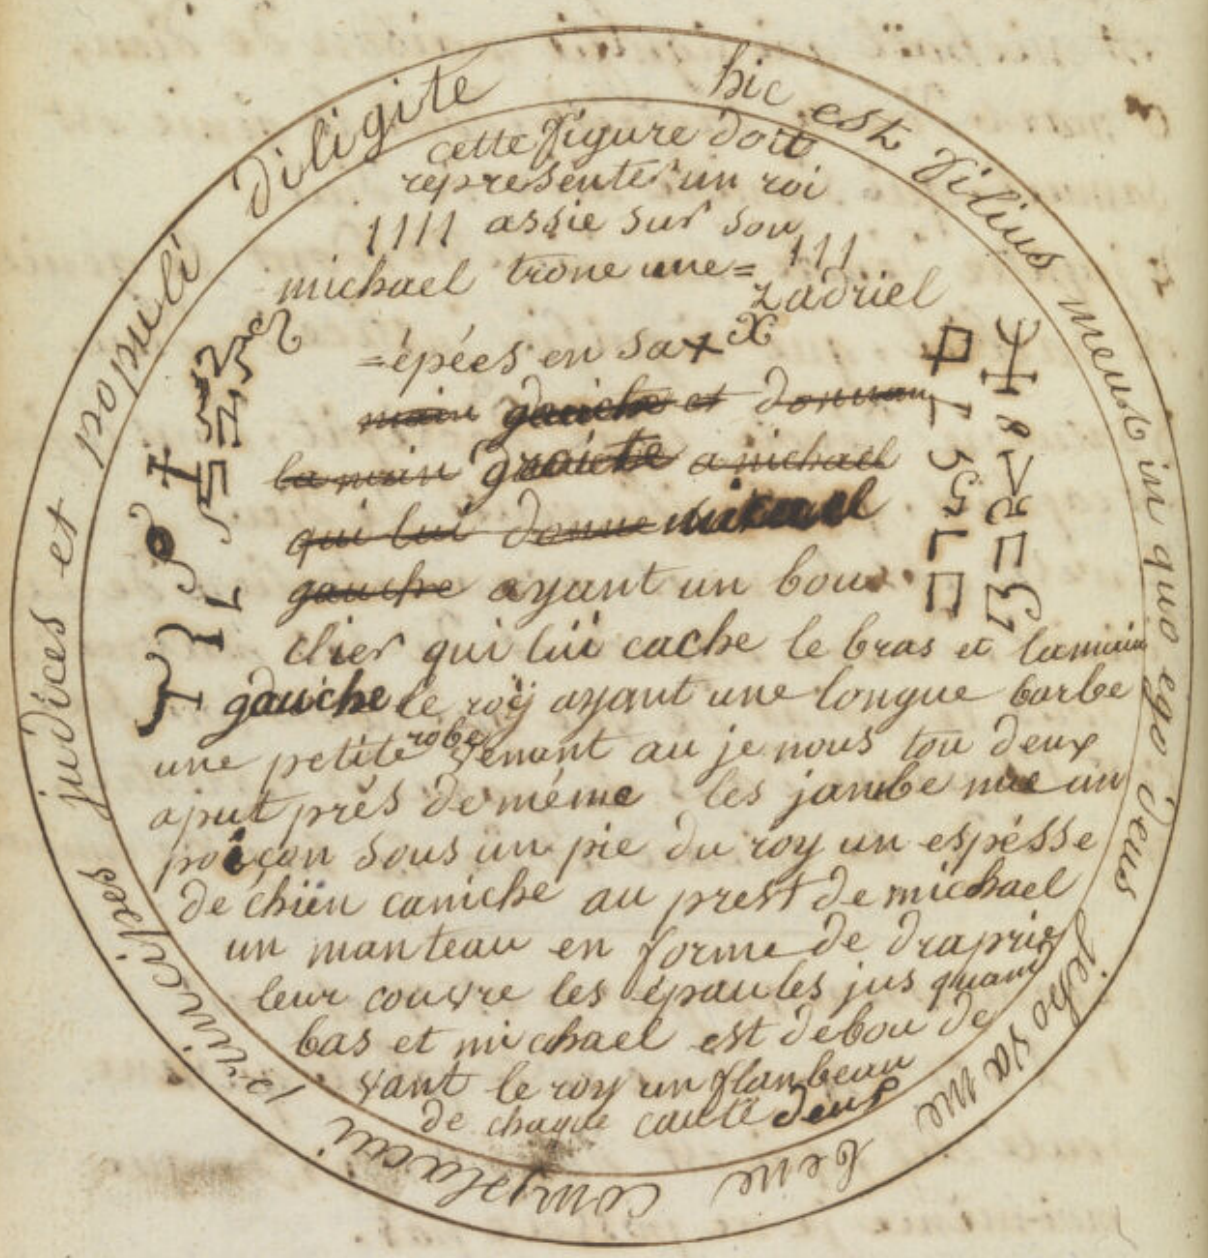 hic est filius meus in quo ego deus jehova me bene complacui
principes judices et populi diligite
cette figure doit
representer un roi
1111 assie sur son
111
michael trone une=
zadriel
=épées en sa + x
main gauche et donnan
la main droite a michael
qui lui donne
gauche ayant un bou
clier qui lui cache le bras et lamain
gauche le roÿ ayant une longue barbe
une petite robe venant au je nous tou deux
aput prés de méme les jambe nue un
poiçon sous un pie du roy un espésse
de chien caniche au prest de michael
un manteau en forme de draprie
leur couvre les épaules jus quant
bas et michael est debou de
vant le roy un flanbeau
de chaque cauté deus